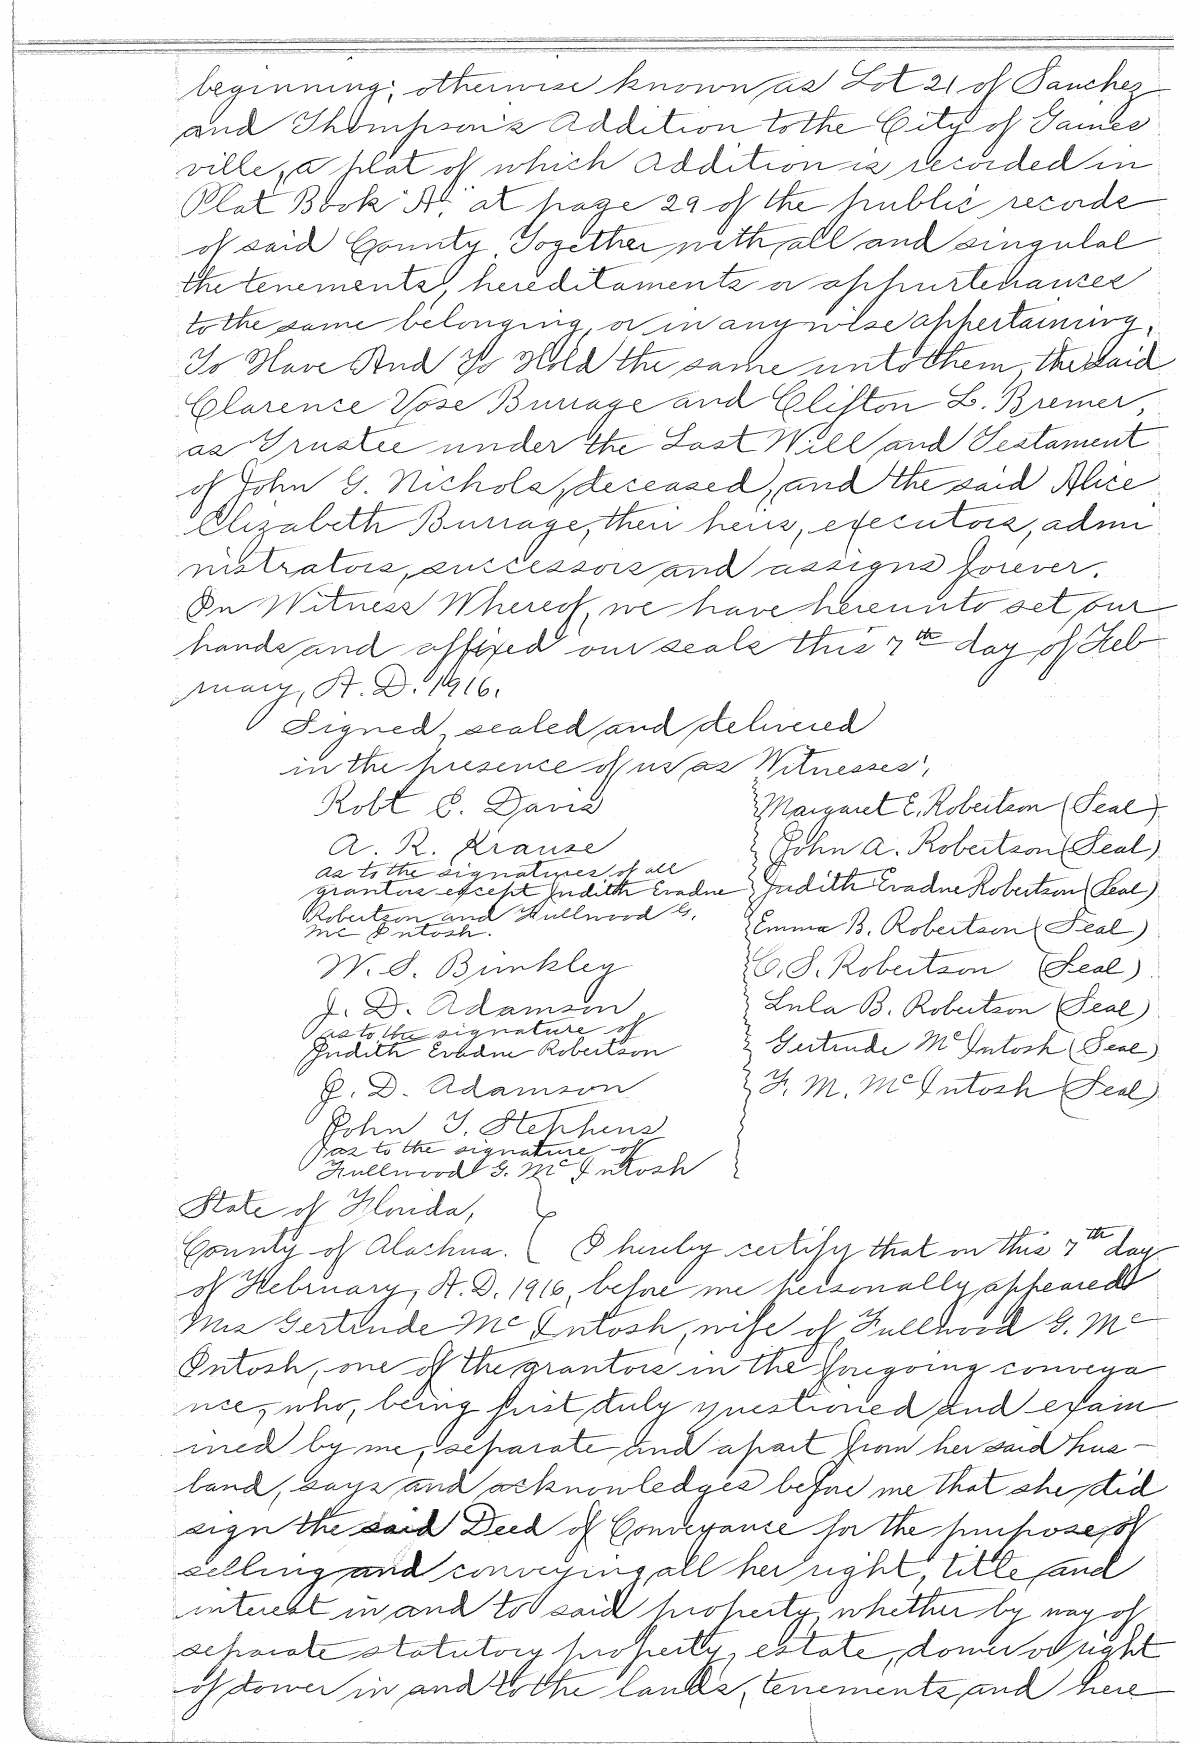 beginning; otherwise known as Lot 21 of Sanchez
and Thompson's Addition to the City of Gaines
ville, a plat of which Addition is recorded in
Plat Book "A," at page 29 of the public records
of said County. Together with all and singular
the tenements, hereditaments or appurtenances
to the same belonging, or in anywise appertaining,
To Have And To Hold the same unto them, the said
Clarence Vose Burrage and Clifton L. Bremer,
as Trustee under the Last Will and Testament
of John G. Nichols, deceased, and the said Alice
Elizabeth Burrage, their heirs, executors, admi
nistrators, successors and assigns forever.
In Witness Whereof, we have hereunto set our
hands and affixed our seals this 7th day of Feb
ruary, A.D. 1916.
Signed, sealed and delivered
in the presence of us as Witnesses:
Robt E. Davis
A. R. Krause
as to the signatures of all
grantors except Judith Evadne
Robertson and Fullwood G.
Mc Intosh.
W. S. Binkley
J. D. Adamson
as to the signature of
Judith Evadne Robertson
J. D. Adamson
John T. Stephens
as to the signature of
Fullwood G. McIntosh
Margaret E. Robertson (Seal)
John A. Robertson (Seal)
Judith Evadne Robertson (Seal)
Emma B. Robertson (Seal)
C. S. Robertson (Seal)
Lula B. Robertson (Seal)
Gertrude McIntosh (Seal)
F. M. McIntosh (Seal)
State of Florida,
County of Alachua. I hereby certify that on this 7th day
of February, A.D. 1916, before me personally appeared
Mrs Gertrude McIntosh, wife of Fullwood G. Mc
Intosh, one of the grantors in the foregoing conveya
nce, who, being first duly questioned and exam
ined by me, separate and apart from her said hus-
band, says and acknowledges before me that she did
sign the said Deed of Conveyance for the purpose of
selling and conveying all her right, title and
interest in and to said property, whether by way of
separate statutory property, estate, dower or right
of dower in and to the lands, tenements and here